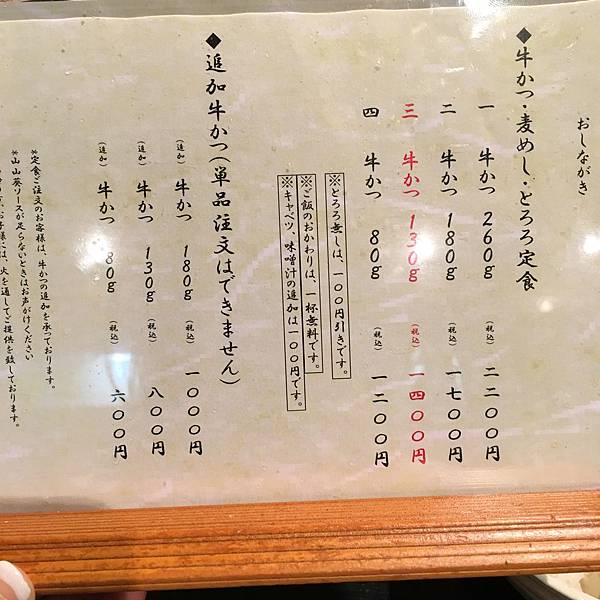 おしながき
◆牛かつ・麦めし・とろろ定食
一 牛かつ 260g (税込) 二二〇〇円
二 牛かつ 180g (税込) 一七〇〇円
三 牛かつ 130g (税込) 一四〇〇円
四 牛かつ 80g (税込) 一二〇〇円
※とろろ無しは、一〇〇円引きです。
※ご飯のおかわりは、一杯無料です。
※キャベツ、味噌汁の追加は一〇〇円です。
◆追加牛かつ(単品注文はできません)
(追加) 牛かつ 180g (税込) 一〇〇〇円
(追加) 牛かつ 130g (税込) 八〇〇円
(追加) 牛かつ 80g (税込) 六〇〇円
※定食ご注文のお客様は、牛かつの追加を承っております。
※山山葵ソースが足らないときはお声がけください
お子様には、火を通してご提供を致しております。